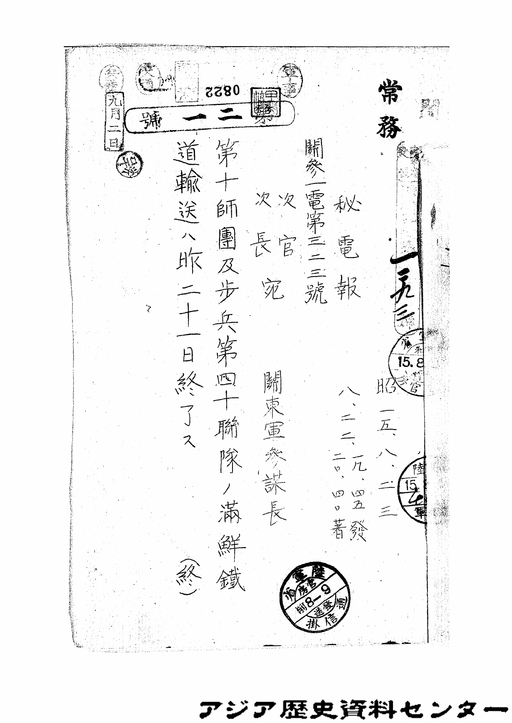 常務
昭一五、八、二三
秘電報
八、二二、一九、四五發
二〇、四〇著
關參一電第三二三號
次官
次長宛
關東軍參謀長
第十師團及步兵第四十聯隊ノ滿鮮鐵
道輸送ハ昨二十一日終了ス
(終)
0822
二一號
九月二日
15.8
8-9
アジア歴史資料センター